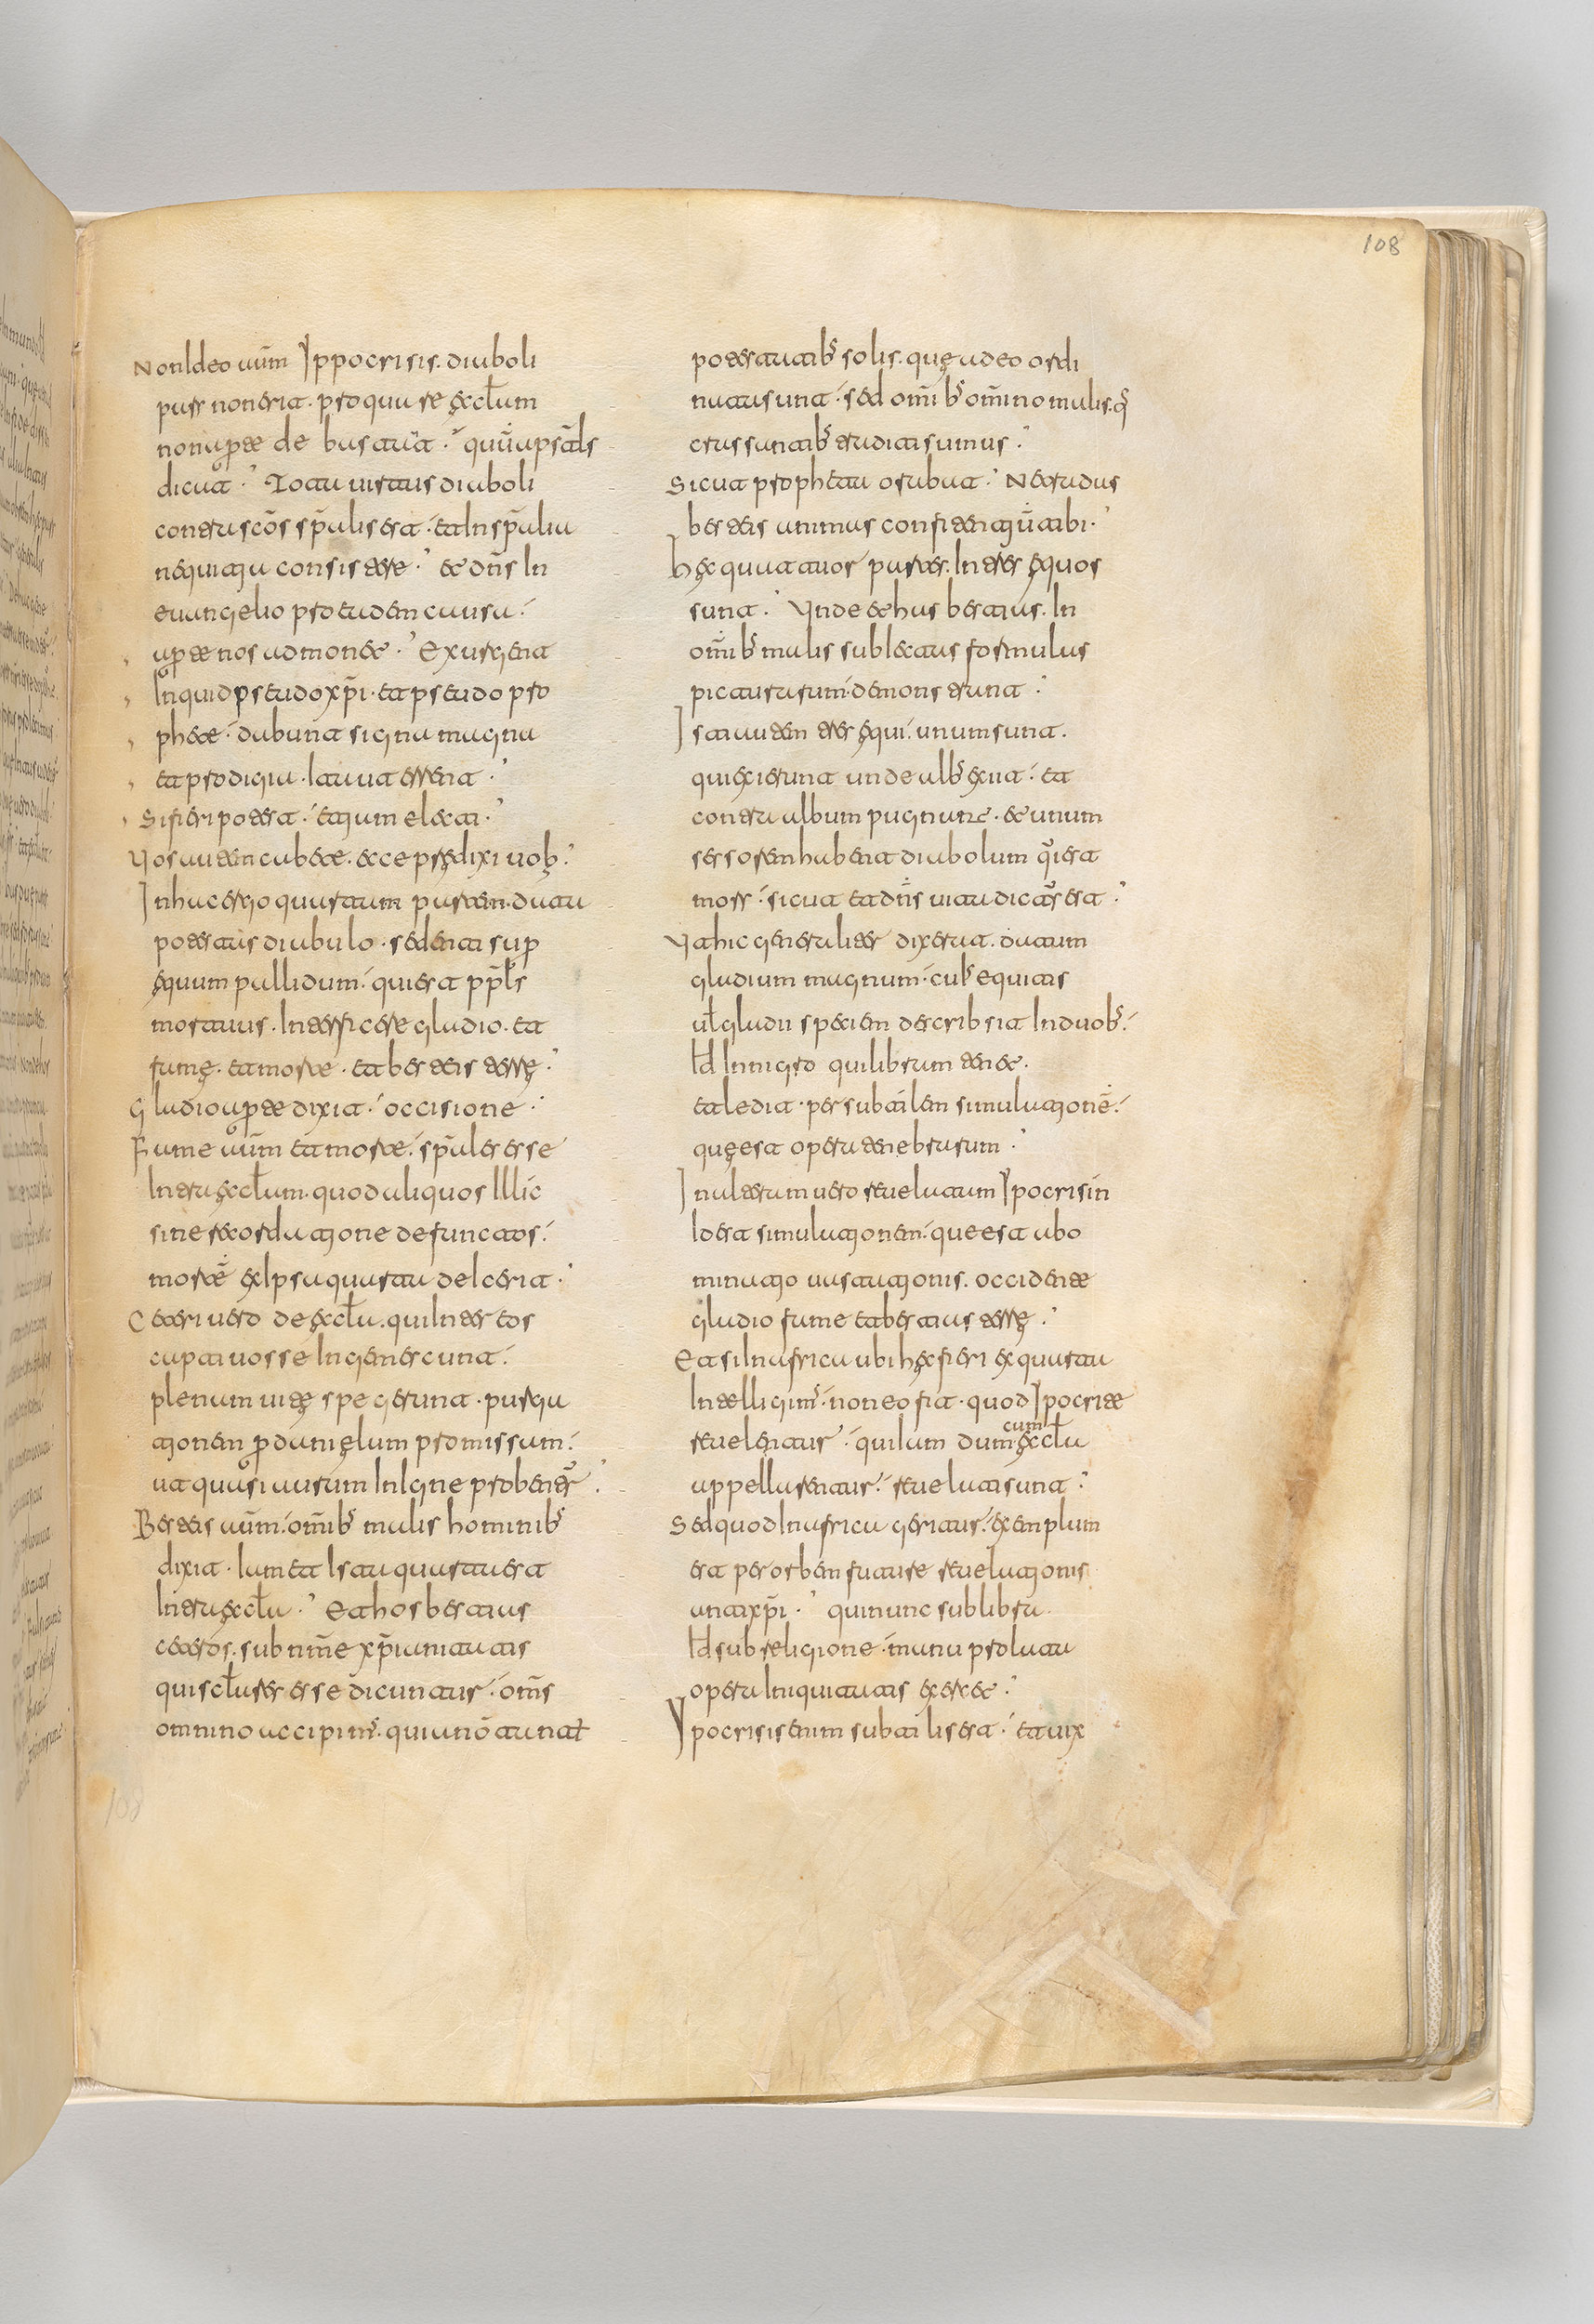 Non Ideo aūm Ippocrisis. diaboli
pars non erit. pro qua re eccl̄am
non ap̄te debastat. quū apsāls
dicat. Tota uirtus diaboli
contra scōs sp̄alis est. et In sp̄alia
nequitia consistere. et dn̄s In
euangelio pro eadem causa.
ap̄te nos admonet. Exurgent
Inquid pseudoxp̄i. et pseudo pro
phete. dabunt signa magna
et prodigia. Ita ut errent.
Si fieri potest. etiam electi.
Vos autem cabete. ecce predixi uob̄.
In hac ergo quartam partem. data
potestas diabolo. sedenti sup̄
equum pallidum. qui est pp̄ls
mortuus. Interficere gladio. et
fame. et morte. et bestiis terre.
Gladio ap̄te dixit. occisione.
Fame aūm et morte. sp̄ales esse
Intra eccl̄am. quod aliquos Illic
sine recordatione defunctos.
morte ex Ipsa quarta deicerit.
Ceteri uero de eccl̄a. qui Inter eos
captiuos se Ingemescunt.
plenam uite spe gerunt. purga
tionem p̄ danielum promissam.
ut quasi aurum In Igne probentur.
Bestiis aūm. om̄ib; malis hominib;
dixit. Iam et Ista quarta est
Intra eccl̄a. Et hos bestias
ceteros. sub nm̄e xp̄ianitatis
qui scl̄ares esse dicuntur. om̄s
omnino accipim̄. quia nō tantt̄
potestatib; solis. que a deo ordi
natas sunt. sed om̄ib; om̄ino malis. q;
certus suntib; traditi sumus.
Sicut propheta orabat. Ne tradas
besteis animas confitentiū tibi.
hec quattuor partes. Inter equos
sunt. Vnde et has bestias. In
om̄ib; malis subIectas formulas
picturarum. demonstrant.
Isti autem tres equi. unum sunt.
qui exierunt unde alb; exiit. et
contra album pugnant. et unum
sessorem habent diabolum qui est
mors. sicut et dn̄s uita dicatus est.
Vt hic generaliter dixerat. datum
gladium magnum. cui; equitis
ul̄ gladii speciem describsit In duob;.
Id In nigro qui libram tenet.
et ledit. per subtilem simulationē.
que est opera tenebrarum.
In alterum uero reuelatum Ipocrisin
Id est simulationem. que est abo
minatio uastationis. occidente
gladio fame et bestias terre.
Et si In africa ubi hec fieri ex quarta
Intelligim̄. non eo fit. quod Ipocrite
reuelentur. qui Iam dum cum eccl̄a
appellarentur. reuelati sunt.
Sed quod In africa geritur. exemplum
est per orbem future reuelationis
antixp̄i. qui nunc sub libra.
Id sub religione. manu prolata
opera Iniquitatis exercet.
Ypocrisis enim subtilis est. et uix
108